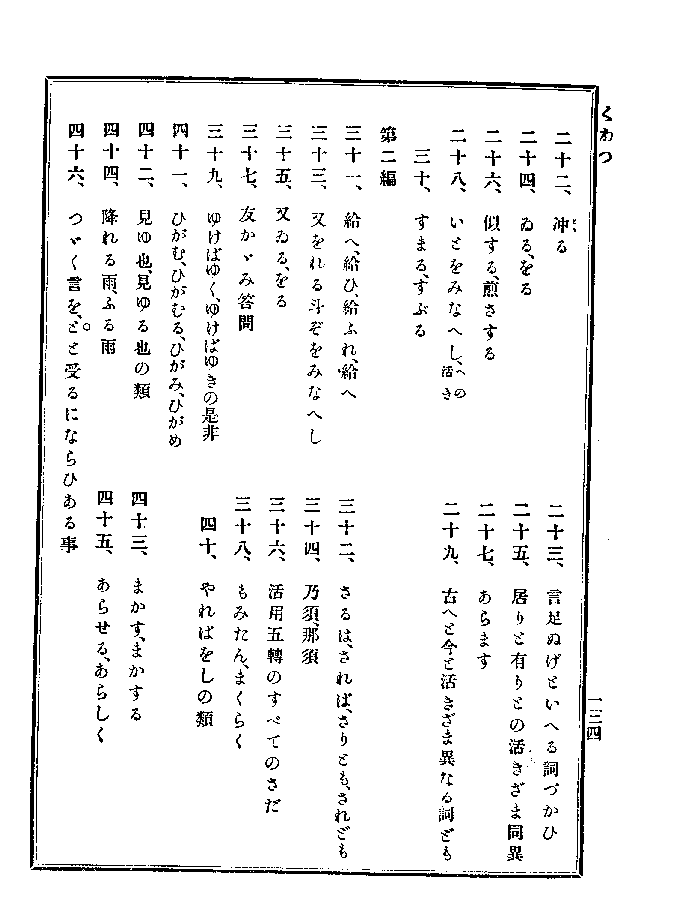 くわつ
一三四
二十二、冲る
二十三、言足ぬげといへる詞づかひ
二十四、ゐる、をる
二十五、居りと有りとの活きざま同異
二十六、似する、煎さする
二十七、あらます
二十八、いとをみなへし、への活き
二十九、古へと今と活きざま異なる詞ども
三十、すまる、すぶる
第二編
三十一、給へ、給ひ、給ふれ、給へ
三十二、さるは、されば、さりとも、されども
三十三、又をれる斗ぞをみなへし
三十四、乃須、那須
三十五、又ゐる、をる
三十六、活用五轉のすべてのさだ
三十七、友かゞみ答問
三十八、もみたん、まくらく
三十九、ゆけばゆく、ゆけばゆきの是非
四十、やればをしの類
四十一、ひがむ、ひがむる、ひがみ、ひがめ
四十二、見ゆ也、見ゆる也の類
四十三、まかす、まかする
四十四、降れる雨、ふる雨
四十五、あらせる、あらしく
四十六、つゞく言を、どと受るにならひある事